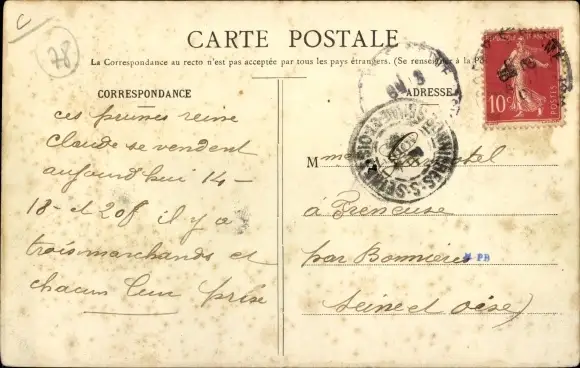 78
CARTE POSTALE
La Correspondance au recto n'est pas acceptée par tous les pays étrangers. (Se renseigner à la
CORRESPONDANCE
ADRESSE
ces prunes reine
claude se vendent
aujourd'hui 14-
18-et 20f il y a
trois marchands et
chacun leur prise
M
à Freneuse
par Bonnières
PB
Seine et Oise)
10c
POSTES